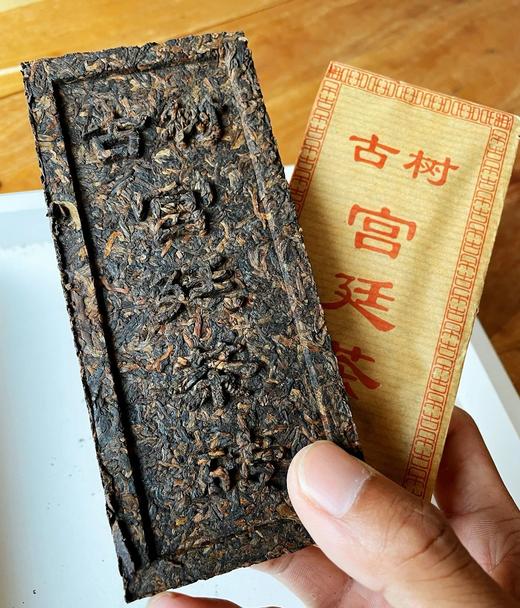 古树
宫
廷
茶
古树
宫
廷
茶